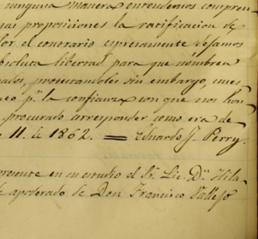 ninguna manera entendemos compren-
nas proposiciones la ratificacion de
lor el contrario espresamente dejamos
bsoluta libertad para que nombren
ados, procurandoles sin embargo, en es
eco p.ª la confianza con que nos hon
procurado corresponder como era de
11. de 1862. = Eduardo J. Perry.
presente en su escrito el Sr. Lic. Dn. Hila
de apoderado de Don Francisco Vallejo